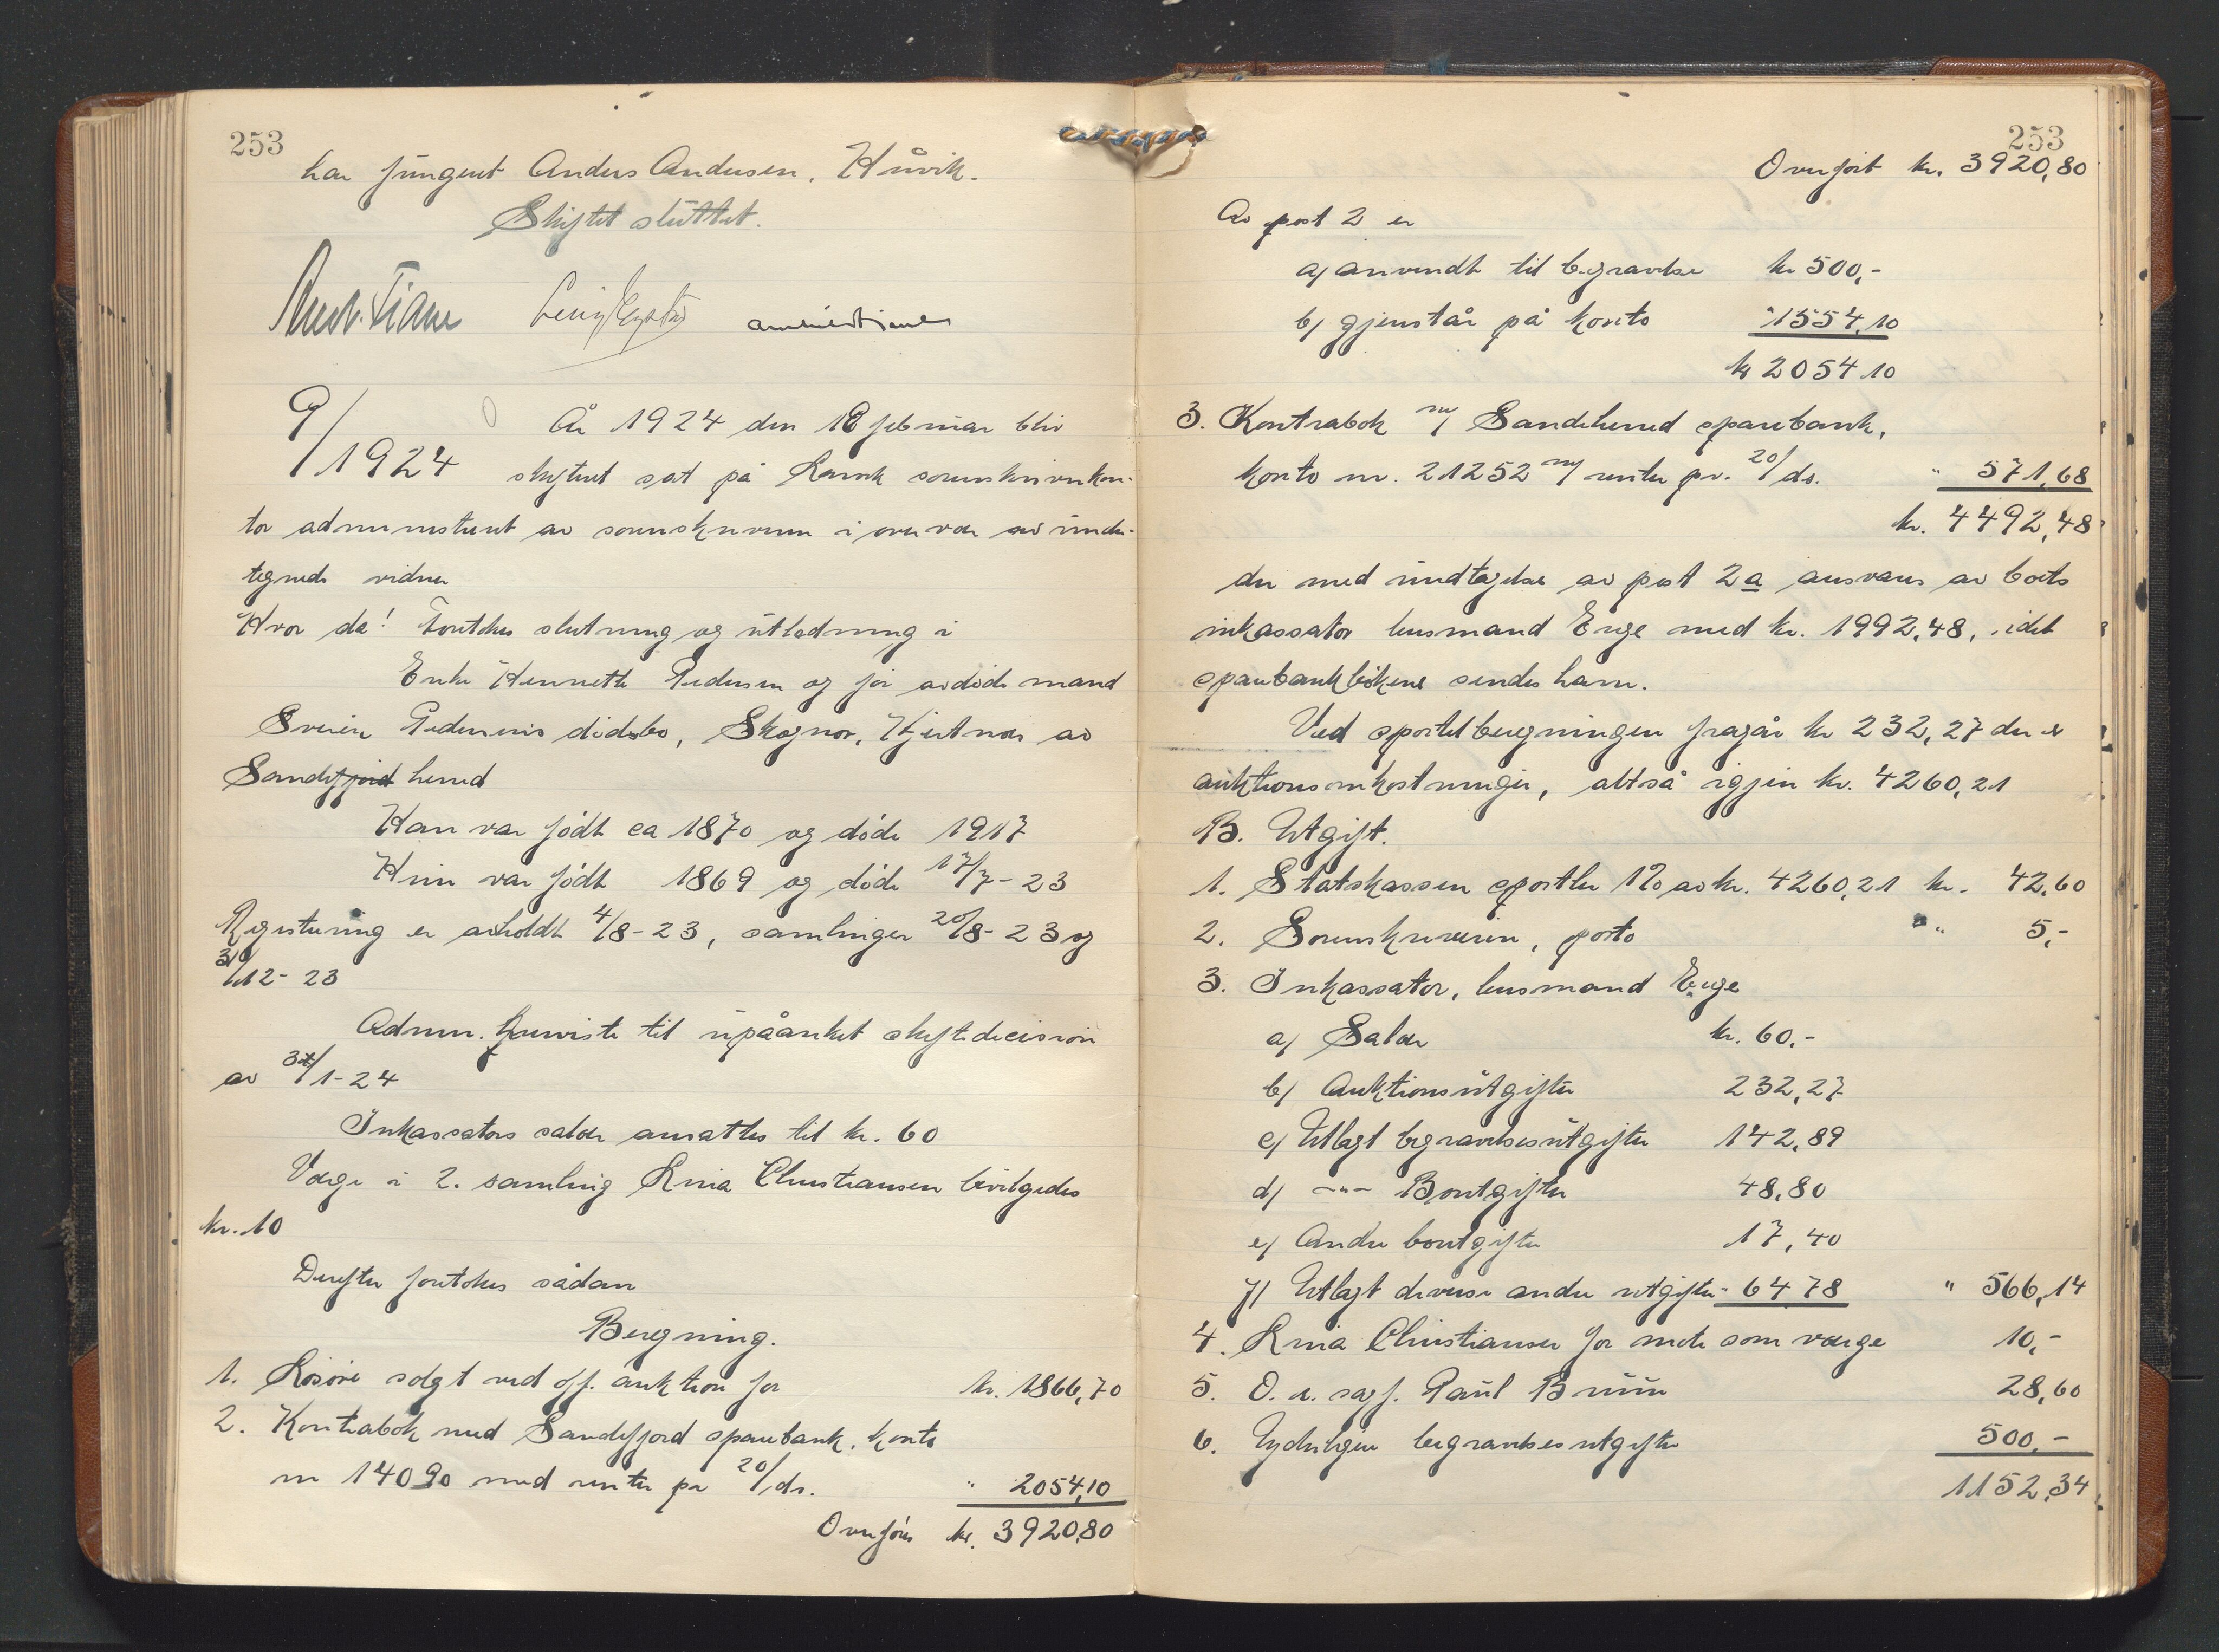 253
har fungert Anders Andersen, Håvik.
Skiftet sluttet.
9/1924 År 1924 den 18 februar blev
skifteret sat på Larvik sorenskriverkon-
tor administreret av sorenskriveren i overvær av under-
tegnede vidner
Hvor da! Foretokes slutning og utlodning i
Enke Hennette Pedersen og før avdøde mand
Svein Pedersens dødsbo, Skognor, Hjertnæs av
Sandefjord herred
Han var født ca 1870 og døde 1917
Hun var født 1869 og døde 17/7-23
Registrering er avholdt 4/8-23, samlinger 20/8-23 og
/12-23
Admin. henviste til upåanket skiftedecision
av /1-24
Inkassators salær ansattes til kr. 60
Værge i 2. samling Lina Christiansen bevilgedes
kr. 10
Derefter foretokes sådan
Beregning.
1. Løsøre solgt ved off. auktion for kr. 1866,70
2. Kontrabok med Sandefjord sparebank, konto
nr 14090 med renter pr 20/ds. " 2054,10
Overføres kr. 3920,80
253
Overført kr. 3920,80
Av post 2 er
a) anvendt til begravelse kr 500,-
b) gjenstår på konto " 1554,10
kr 2054 10
3. Kontrabok m/ Sandeherred sparebank,
konto nr. 21252 m/ renter pr. 20/ds. " 571,68
kr. 4492,48
der med undtagelse av post 2a ansvares av boets
inkassator lensmand Enge med kr. 1992,48, idet
sparebankbøkene sendes ham.
Ved sportelberegningen fragår kr 232,27 der er
auktionsomkostninger, altså igjen kr. 4260,21
B. Utgift.
1. Statskassen sportler 1% av kr. 4260,21 kr. 42,60
2. Sorenskriveren, porto " 5,-
3. Inkassator, lensmand Enge
a) Salær kr. 60.-
b) Auktionsutgifter 232,27
c) Utlagt begravelsesutgifter 142,89
d) -"- Boutgifter 48,80
e) Andre boutgifter 17,40
f) Utlagt diverse andre utgifter 64 78 " 566,14
4. Lina Christiansen for møte som værge 10,-
5. O. r. sagf. Paul Bruun 28,60
6. Yderligere begravelsesutgifter 500,-
1152,34